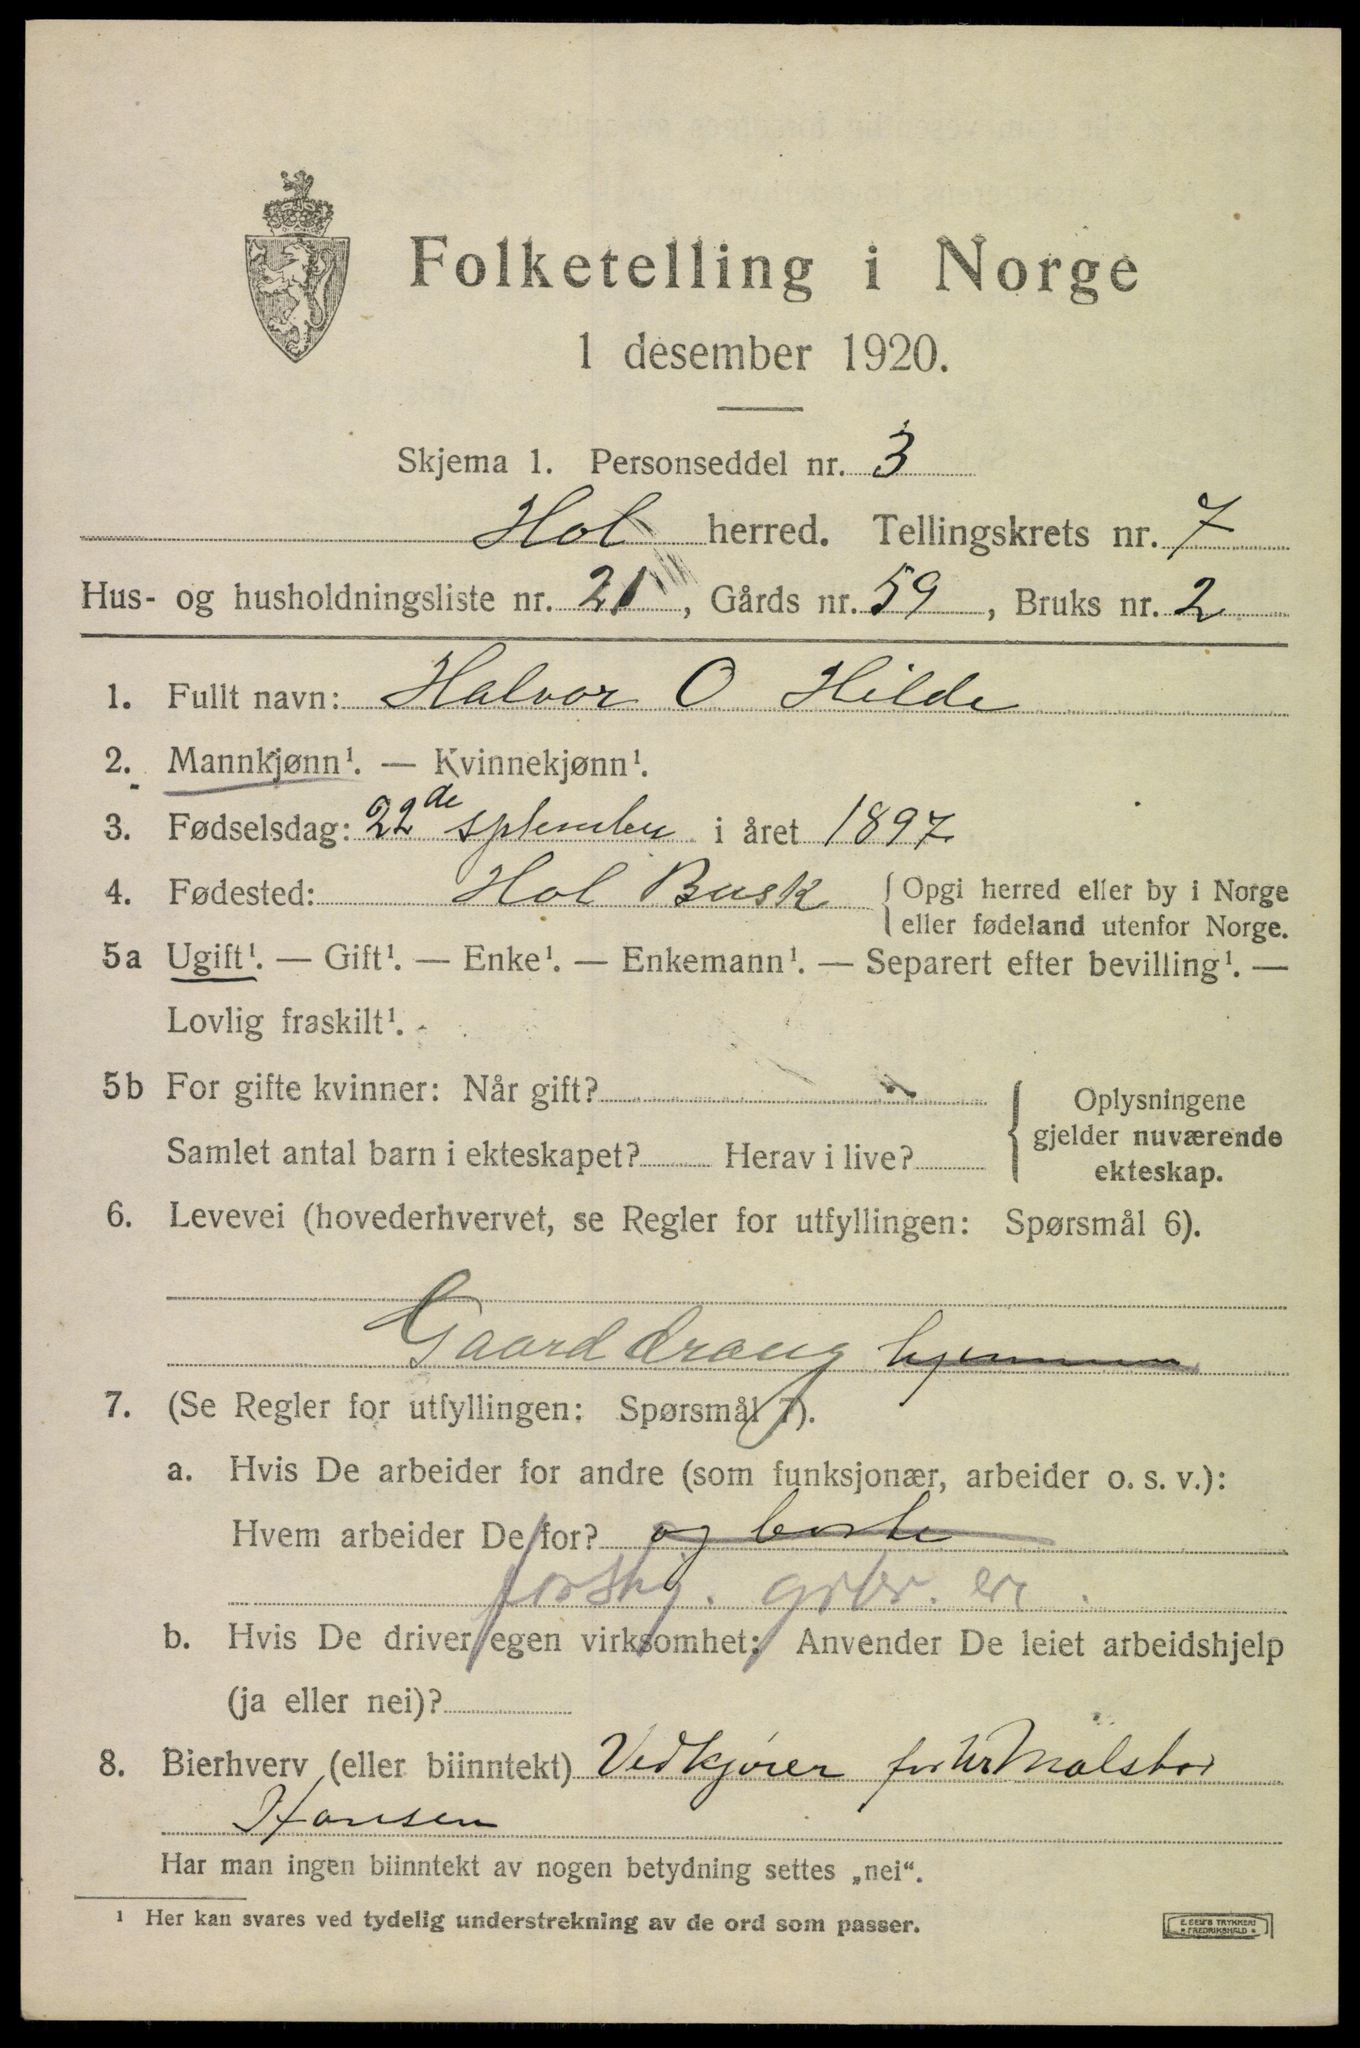 Folketelling i Norge
1 desember 1920.
Skjema 1. Personseddel nr. 3
Hol herred. Tellingskrets nr. 7
Hus- og husholdningsliste nr. 21, Gårds nr. 59, Bruks nr. 2
1. Fullt navn: Halvor O Hilde
2. Mannkjønn¹. — Kvinnekjønn¹.
3. Fødselsdag: 22de september i året 1897
4. Fødested: Hol Busk {Opgi herred eller by i Norge
eller fødeland utenfor Norge.
5a Ugift¹. — Gift¹. — Enke¹. — Enkemann¹. — Separert efter bevilling¹. —
Lovlig fraskilt¹.
5b For gifte kvinner: Når gift?
Samlet antal barn i ekteskapet? Herav i live?
{Oplysningene
gjelder nuværende
ekteskap.
6. Levevei (hovederhvervet, se Regler for utfyllingen: Spørsmål 6).
Gaarddraug hjemme
7. (Se Regler for utfyllingen: Spørsmål 7).
a. Hvis De arbeider for andre (som funksjonær, arbeider o. s. v.):
Hvem arbeider De for? og borte
forskj. grbr. ere.
b. Hvis De driver egen virksomhet: Anvender De leiet arbeidshjelp
(ja eller nei)?
8. Bierhverv (eller biinntekt) Vedkjører for
Hansen
Har man ingen biinntekt av nogen betydning settes „nei“.
¹ Her kan svares ved tydelig understrekning av de ord som passer.
E. SEM'S TRYKKERI
FREDRIKSHALD